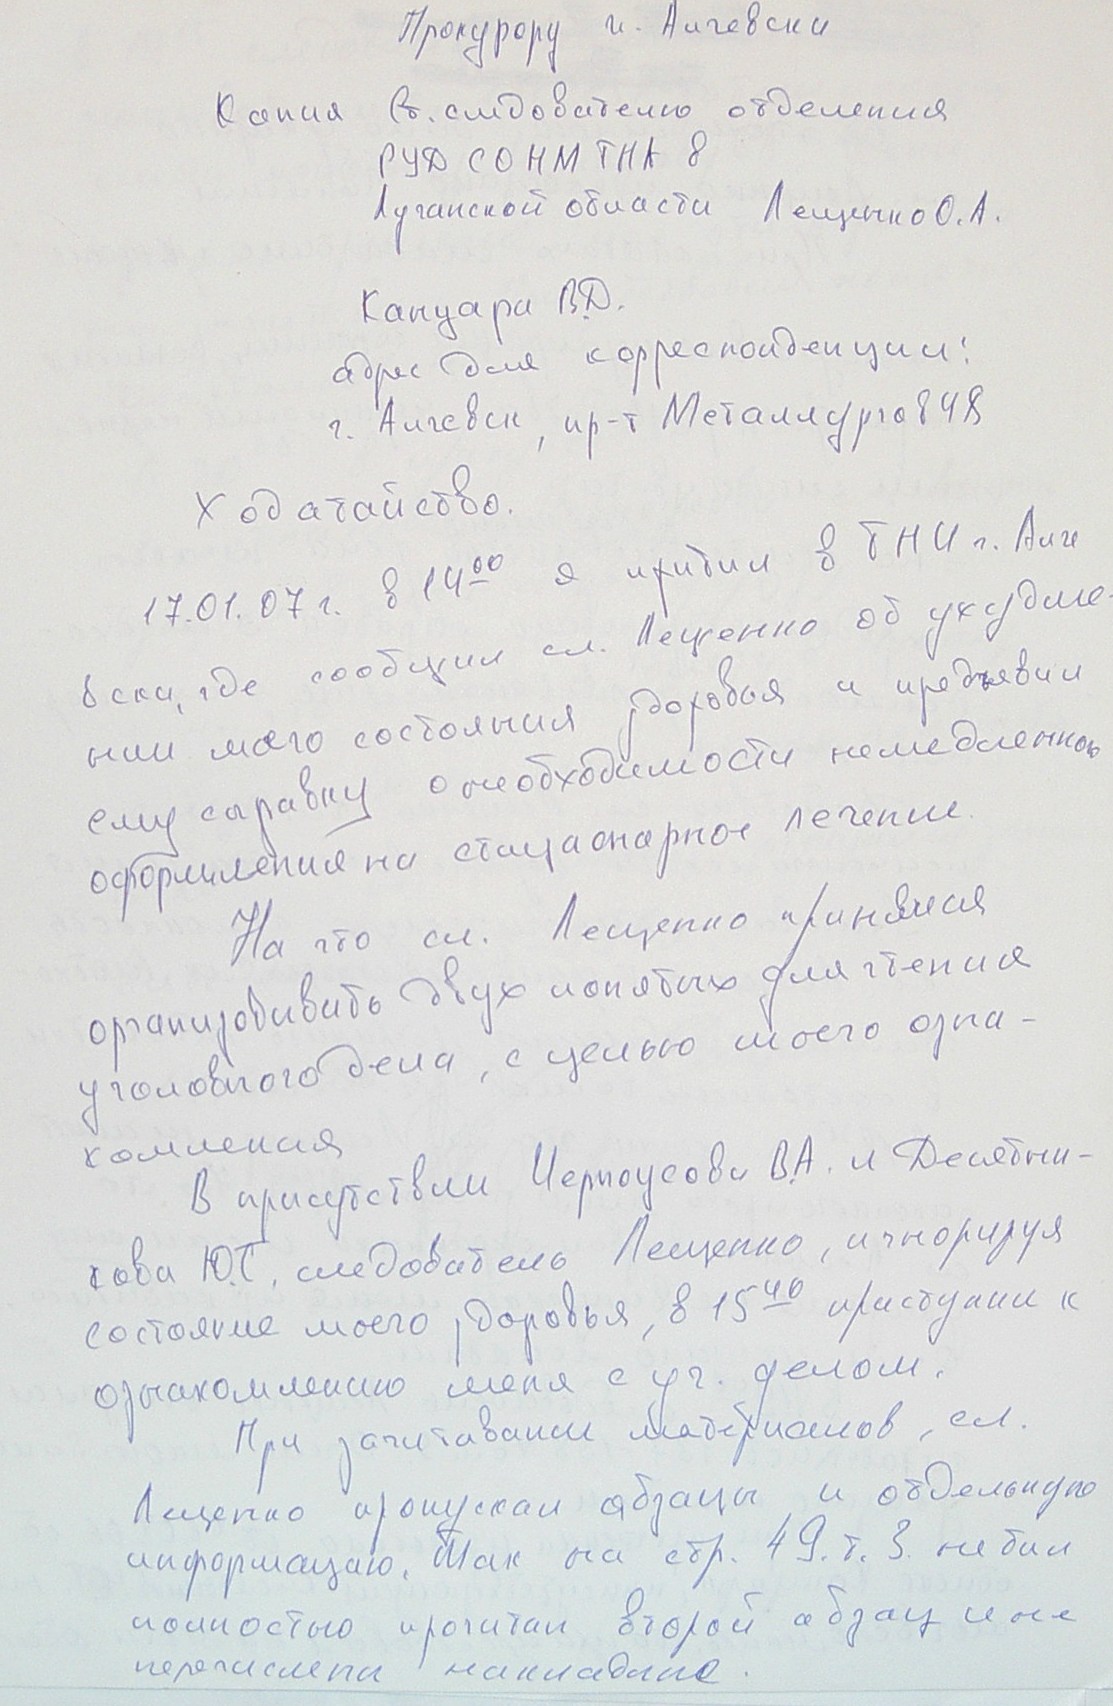 Прокурору г. Алчевска
Копия Ст. следователю отделения
РУД СО НМ ГНА в
Луганской области Лещенко О.А.
Канцура В.Д.
адрес для корреспонденции:
г. Алчевск, пр-т Металлургов 48
Ходатайство.
17.01.07 г. в 14⁰⁰ я прибыл в ГНИ г. Алче
вска, где сообщил сл. Лещенко об ухудше-
нии моего состояния здоровья и предъявил
ему справку о необходимости немедленного
оформления на стационарное лечение.
На что сл. Лещенко принялся
организовывать двух понятых для чтения
уголовного дела, с целью моего озна-
комления
В присутствии Черноусова В.А. и Десятни-
кова Ю.Г. следователь Лещенко, игнорируя
состояние моего здоровья, в 15⁴⁰ приступил к
ознакомлению меня с уг. делом.
При зачитывании материалов, сл.
Лещенко пропускал абзацы и отдельную
информацию. Так на стр. 49. т. 3. не был
полностью прочитан второй абзац и не
перечислены накладные.